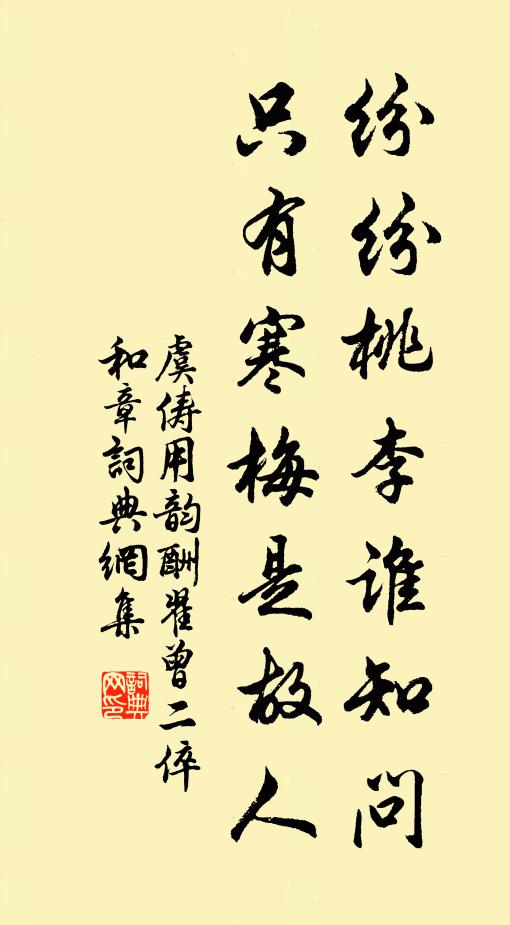 纷纷桃李谁知问
只有寒梅是故人
虞俦用韵酬翟曾二倅
和章詞典網集
詞典
网印